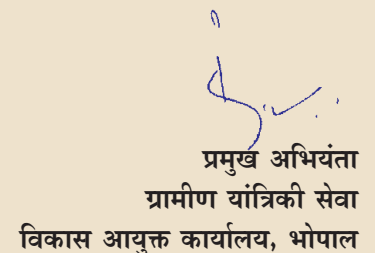 प्रमुख अभियंता
ग्रामीण यांत्रिकी सेवा
विकास आयुक्त कार्यालय, भोपाल